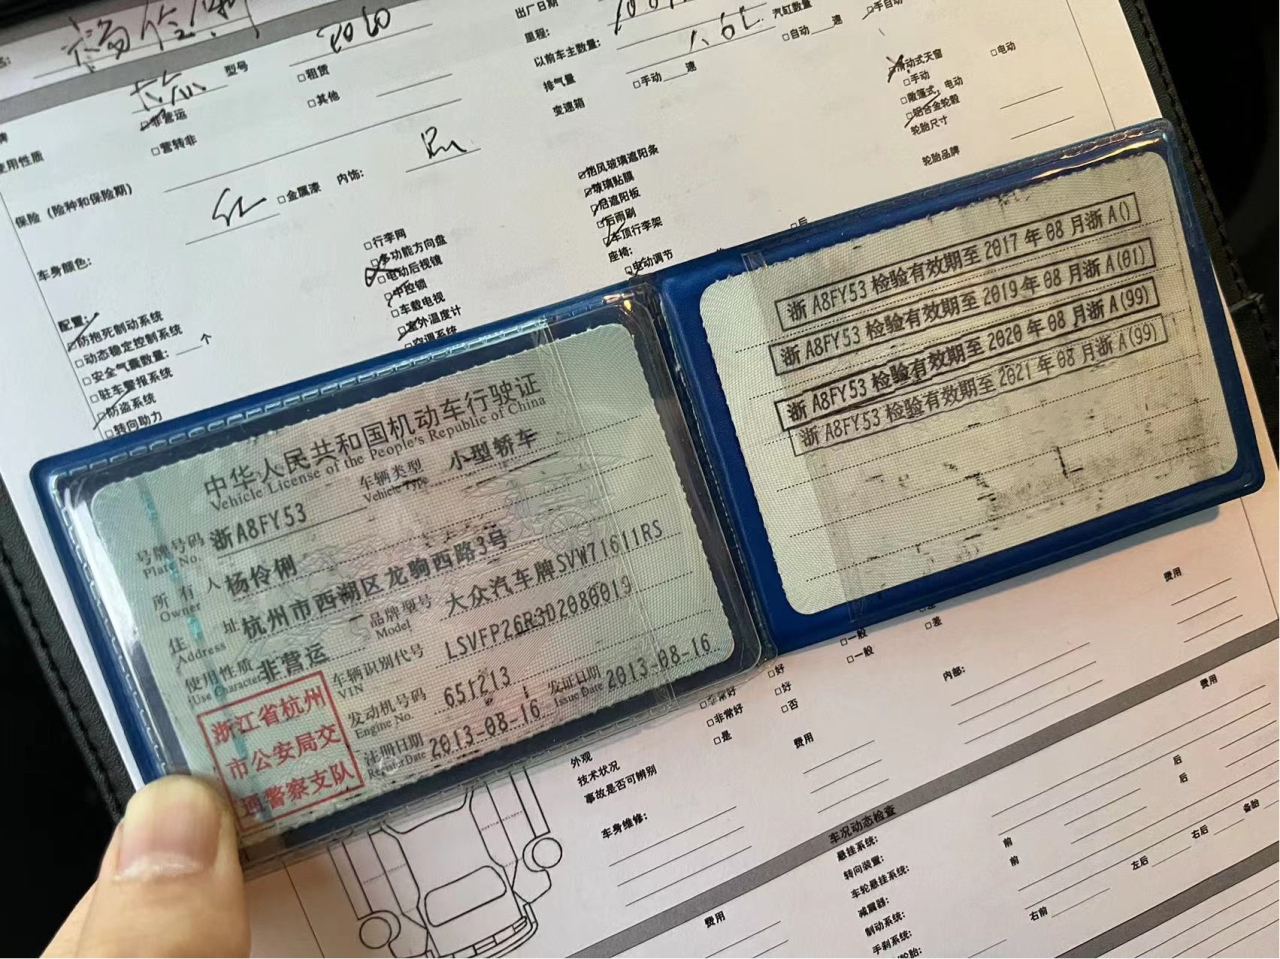 出厂日期
里程:
以前车主数量:
排气量 1.6L 汽缸数量
变速箱 □手动 速 □自动 速 □手自动
型号
□租赁
□其他
□非营运
□营转非
使用性质
保险（险种和保险期）
车身颜色: 红 □金属漆 内饰:
□滑动式天窗 □电动
□手动
□散篷式, 电动
□铝合金轮毂
轮胎尺寸
轮胎品牌
配置:
□防抱死制动系统
□动态稳定控制系统
□安全气囊数量: 个
□驻车警报系统
□防盗系统
□转向助力
□行李网
□多功能方向盘
□电动后视镜
□中控锁
□车载电视
□室外温度计
□空调系统
□挡风玻璃遮阳条
□玻璃贴膜
□后遮阳板
□后雨刷
□车顶行李架
座椅:
□电动调节
中华人民共和国机动车行驶证
Vehicle License of the People's Republic of China
号牌号码 浙A8FY53 车辆类型 小型轿车
Plate No. Vehicle Type
所有人 杨伶俐
Owner
住址 杭州市西湖区龙驹西路3号
Address
使用性质 非营运 品牌型号 大众汽车牌SVW71611RS
Use Character Model
车辆识别代号 LSVFP26R3D2080019
VIN
发动机号码 651213
Engine No.
注册日期 2013-08-16 发证日期 2013-08-16
Register Date Issue Date
浙江省杭州
市公安局交
通警察支队
浙A8FY53 检验有效期至2017年08月浙A()
浙A8FY53 检验有效期至2019年08月浙A(01)
浙A8FY53 检验有效期至2020年08月浙A(99)
浙A8FY53 检验有效期至2021年08月浙A(99)
□一般 □差
□一般
□非常好 □好
□非常好 □好
□是 □否
外观
技术状况
事故是否可辨别
内部:
费用
费用
费用
费用
车身维修:
车况动态检查
悬挂系统:
转向装置:
车轮悬挂系统:
减震器:
制动系统:
手刹系统:
轮胎:
前 后
前 后
左后 右后 备胎
右前